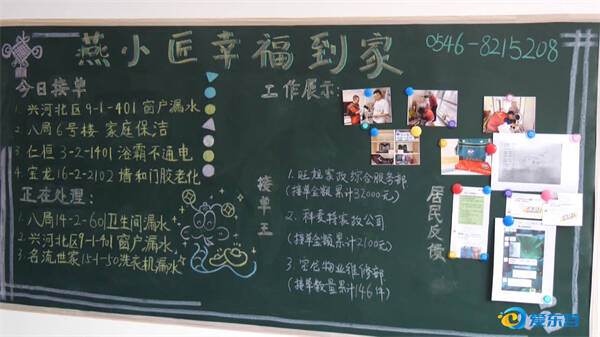 燕小匠幸福到家
0546-8215208
今日接单
1. 兴河北区9-1-401 窗户漏水
2. 八局6号楼 家庭保洁
3. 仁恒3-2-1401 浴霸不通电
4. 宝龙16-2-2102 墙和门胶老化
正在处理:
1. 八局14-2-601卫生间漏水
2. 兴河北区9-1-401 窗户漏水
3. 名流世家15-1-50洗衣机漏水
工作展示:
接单王
1. 旺旭家政综合服务部
(接单金额累计32000元)
2. 科麦特家政公司
(接单金额累计2100元)
3. 宝龙物业维修部
(接单数量累计146件)
居民反馈
爱东营